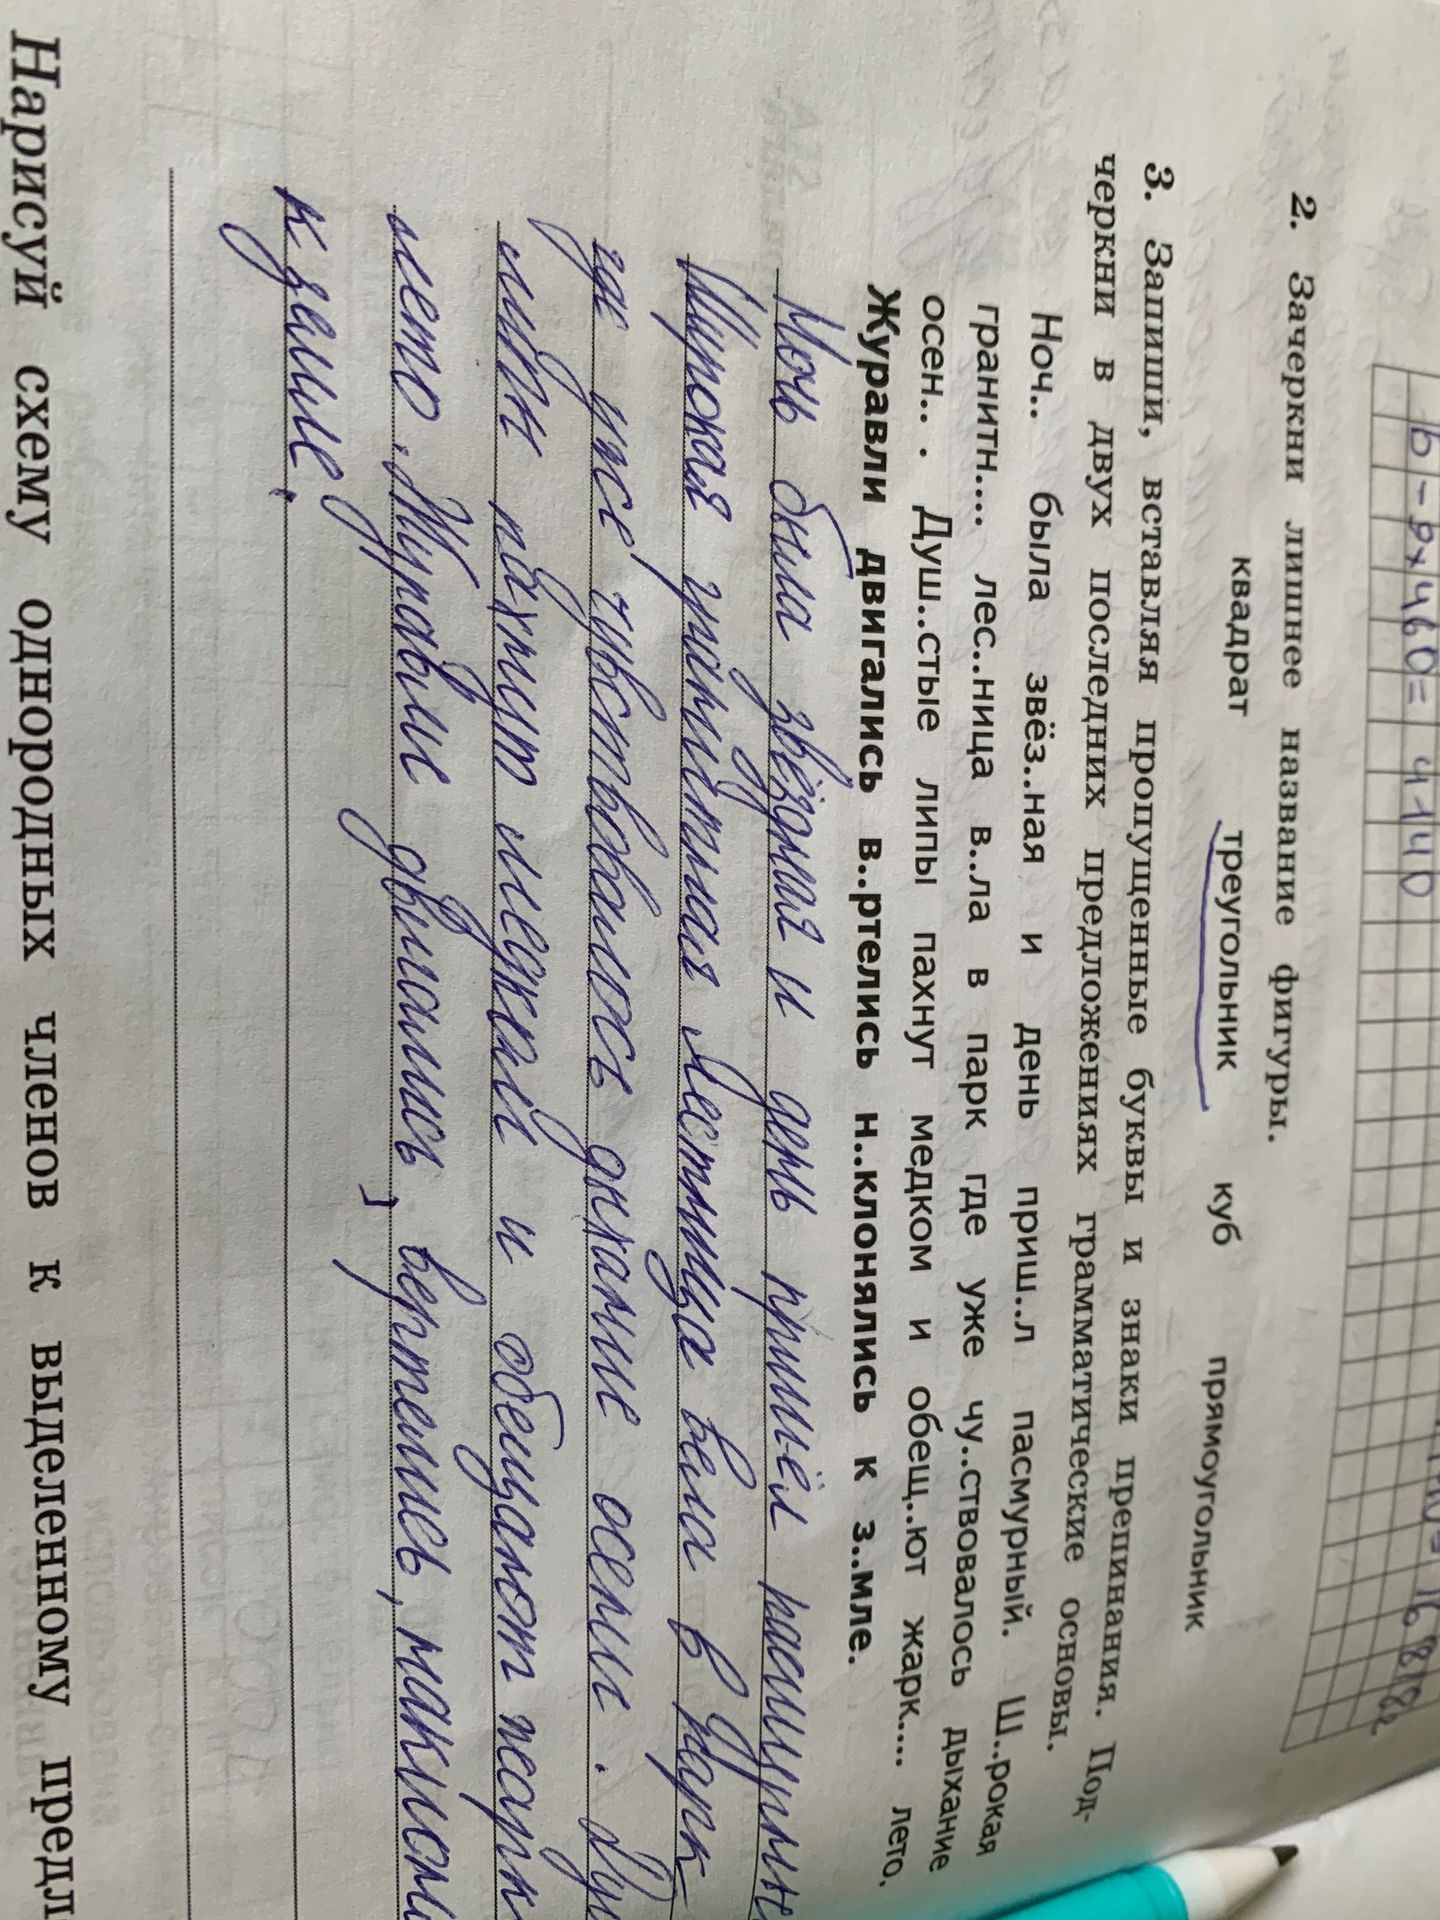 b-9x460=4140
2. Зачеркни лишнее название фигуры.
квадрат треугольник куб прямоугольник
3. Запиши, вставляя пропущенные буквы и знаки препинания. Под-
черкни в двух последних предложениях грамматические основы.
Ноч.. была звёз..ная и день приш..л пасмурный. Ш..рокая
гранитн.... лес..ница в..ла в парк где уже чу..ствовалось дыхание
осен.. . Душ..стые липы пахнут медком и обещ..ют жарк.... лето.
Журавли двигались в..ртелись н..клонялись к з..мле.
Ночь была звёздная и день пришёл
Широкая гранитная лестница вела в парк
где уже чувствовалось дыхание осени.
липы пахнут медком и обещают
лето. Журавли двигались, вертелись,
к земле.
Нарисуй схему однородных членов к выделенному